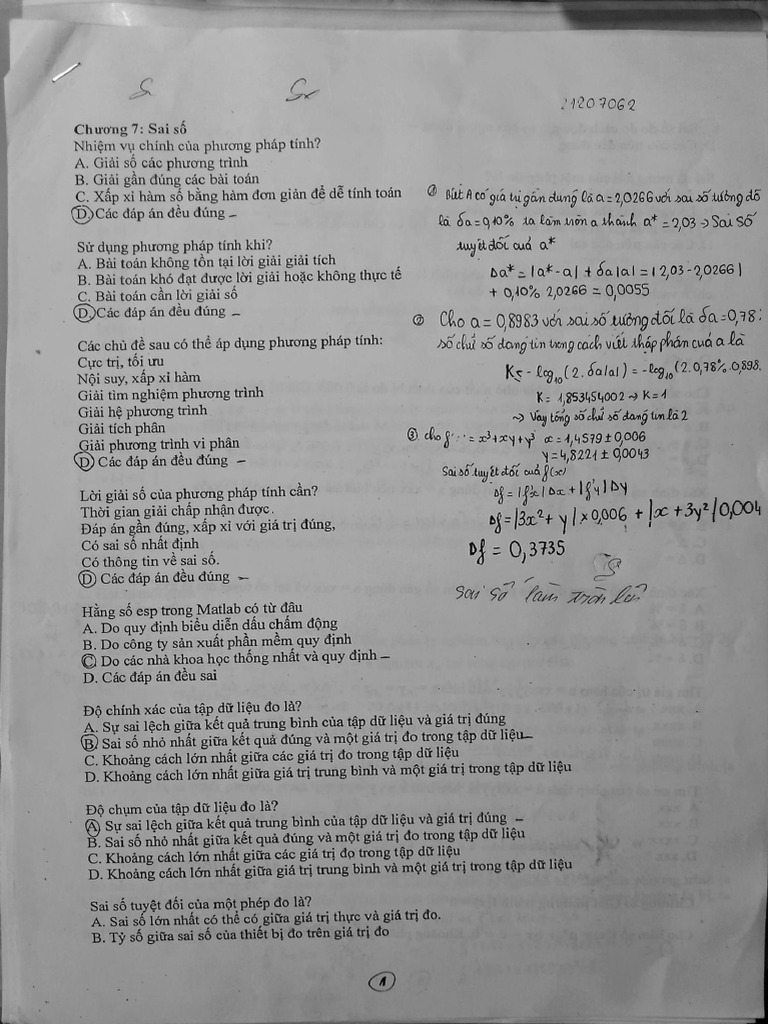 21207062
Chương 7: Sai số
Nhiệm vụ chính của phương pháp tính?
A. Giải số các phương trình
B. Giải gần đúng các bài toán
C. Xấp xỉ hàm số bằng hàm đơn giản để dễ tính toán
D. Các đáp án đều đúng –
Sử dụng phương pháp tính khi?
A. Bài toán không tồn tại lời giải giải tích
B. Bài toán khó đạt được lời giải hoặc không thực tế
C. Bài toán cần lời giải số
D. Các đáp án đều đúng –
Các chủ đề sau có thể áp dụng phương pháp tính:
Cực trị, tối ưu
Nội suy, xấp xỉ hàm
Giải tìm nghiệm phương trình
Giải hệ phương trình
Giải tích phân
Giải phương trình vi phân
D) Các đáp án đều đúng –
Lời giải số của phương pháp tính cần?
Thời gian giải chấp nhận được.
Đáp án gần đúng, xấp xỉ với giá trị đúng,
Có sai số nhất định
Có thông tin về sai số.
D) Các đáp án đều đúng –
Hằng số esp trong Matlab có từ đâu
A. Do quy định biểu diễn dấu chấm động
B. Do công ty sản xuất phần mềm quy định
C. Do các nhà khoa học thống nhất và quy định –
D. Các đáp án đều sai
Độ chính xác của tập dữ liệu đo là?
A. Sự sai lệch giữa kết quả trung bình của tập dữ liệu và giá trị đúng
B. Sai số nhỏ nhất giữa kết quả đúng và một giá trị đo trong tập dữ liệu –
C. Khoảng cách lớn nhất giữa các giá trị đo trong tập dữ liệu
D. Khoảng cách lớn nhất giữa giá trị trung bình và một giá trị trong tập dữ liệu
Độ chụm của tập dữ liệu đo là?
A. Sự sai lệch giữa kết quả trung bình của tập dữ liệu và giá trị đúng –
B. Sai số nhỏ nhất giữa kết quả đúng và một giá trị đo trong tập dữ liệu
C. Khoảng cách lớn nhất giữa các giá trị đo trong tập dữ liệu
D. Khoảng cách lớn nhất giữa giá trị trung bình và một giá trị trong tập dữ liệu
Sai số tuyệt đối của một phép đo là?
A. Sai số lớn nhất có thể có giữa giá trị thực và giá trị đo.
B. Tỷ số giữa sai số của thiết bị đo trên giá trị đo
① Biết A có giá trị gần đúng là a = 2,0266 với sai số tương đối
là δa = 0,10% ta làm tròn a thành a* = 2,03 → Sai số
tuyệt đối của a*
Δa* = |a* - a| + δa|a| = |2,03 - 2,0266|
+ 0,10% 2,0266 = 0,0055
② Cho a = 0,8983 với sai số tương đối là δa = 0,78
số chữ số đáng tin trong cách viết thập phân của a là
K ≤ - log10 (2. δa|a|) = -log10 (2.0,78%.0,898.
K = 1,853454002 → K = 1
→ Vậy tổng số chữ số đáng tin là 2
③ cho = x³ + xy + y³ x = 1,4579 ± 0,006
y = 4,8221 ± 0,0043
Sai số tuyệt đối của f(x)
Δf = |f'x| Δx + |f'y| Δy
Δf = |3x² + y| × 0,006 + |x + 3y²| 0,004
Δf = 0,3735
Sai số làm tròn
1